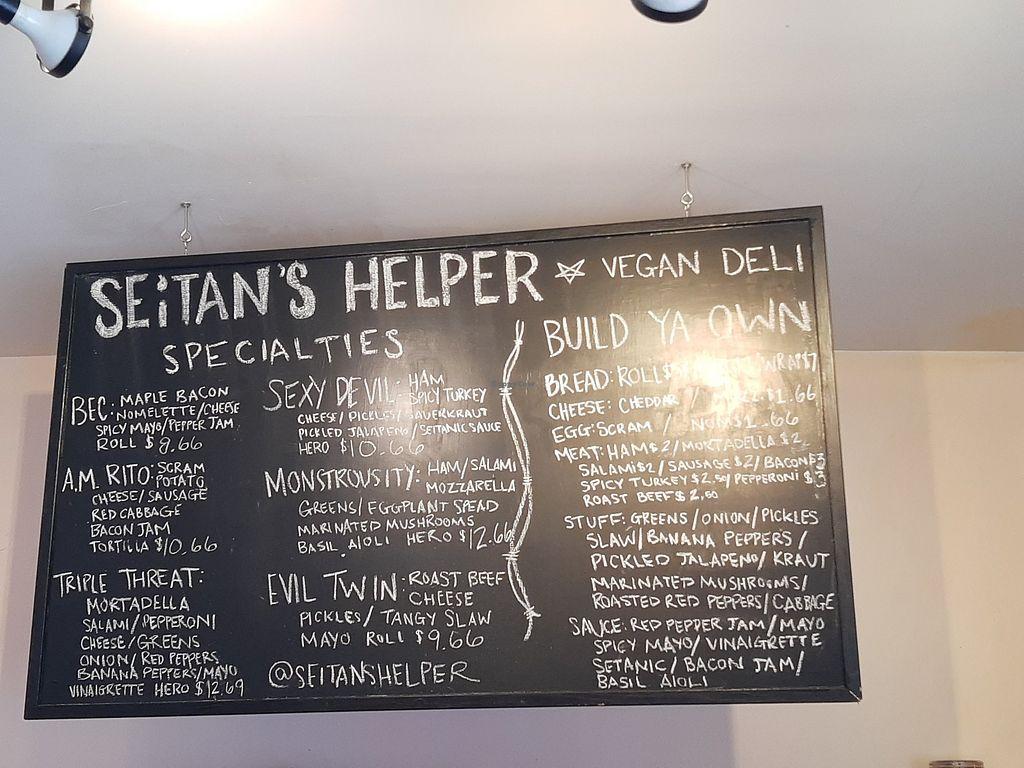 SEiTAN'S HELPER ☆ VEGAN DELI
SPECIALTIES
BEC: MAPLE BACON
NOMELETTE/CHEESE
SPICY MAYO/PEPPER JAM
ROLL $9.66
A.M. RITO: SCRAM
POTATO
CHEESE/SAUSAGE
RED CABBAGE
BACON JAM
TORTILLA $10.66
TRIPLE THREAT:
MORTADELLA
SALAMI/PEPPERONI
CHEESE/GREENS
ONION/RED PEPPERS
BANANA PEPPERS/MAYO
VINAIGRETTE HERO $12.69
SEXY DEVIL: HAM
SPICY TURKEY
CHEESE/PICKLES/SAUERKRAUT
PICKLED JALAPENO/SEITANIC SAUCE
HERO $10.66
MONSTROUSITY: HAM/SALAMI
MOZZARELLA
GREENS/EGGPLANT SPEAD
MARINATED MUSHROOMS
BASIL AIOLI HERO $12.66
EVIL TWIN: ROAST BEEF
CHEESE
PICKLES/TANGY SLAW
MAYO ROLL $9.66
@SEITANSHELPER
BUILD YA OWN
BREAD: ROLL WRAP $7
CHEESE: CHEDDAR / $1.66
EGG: SCRAM / NOM $1.66
MEAT: HAM $2/MORTADELLA $2
SALAMI $2/SAUSAGE $2/BACON $3
SPICY TURKEY $2.50/PEPPERONI $3
ROAST BEEF $2.50
STUFF: GREENS/ONION/PICKLES
SLAW/BANANA PEPPERS/
PICKLED JALAPENO/KRAUT
MARINATED MUSHROOMS/
ROASTED RED PEPPERS/CABBAGE
SAUCE: RED PEPPER JAM/MAYO
SPICY MAYO/VINAIGRETTE
SETANIC/BACON JAM/
BASIL AIOLI